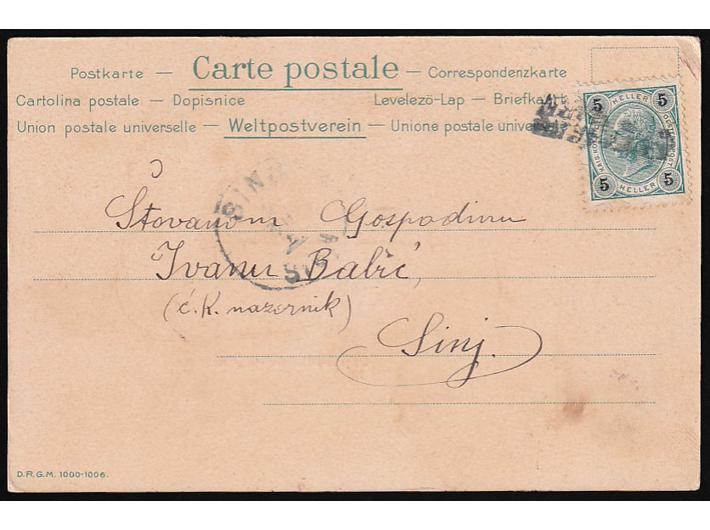 Postkarte — Carte postale — Correspondenzkarte
Cartolina postale — Dopisnice Levelező-Lap — Briefkart
Union postale universelle — Weltpostverein — Unione postale univer
5 HELLER 5
5 HELLER 5
SINJ
Štovanom Gospodinu
Ivanu Babić,
(ć. K. nazernik)
Sinj.
D.R.G.M. 1000-1006.